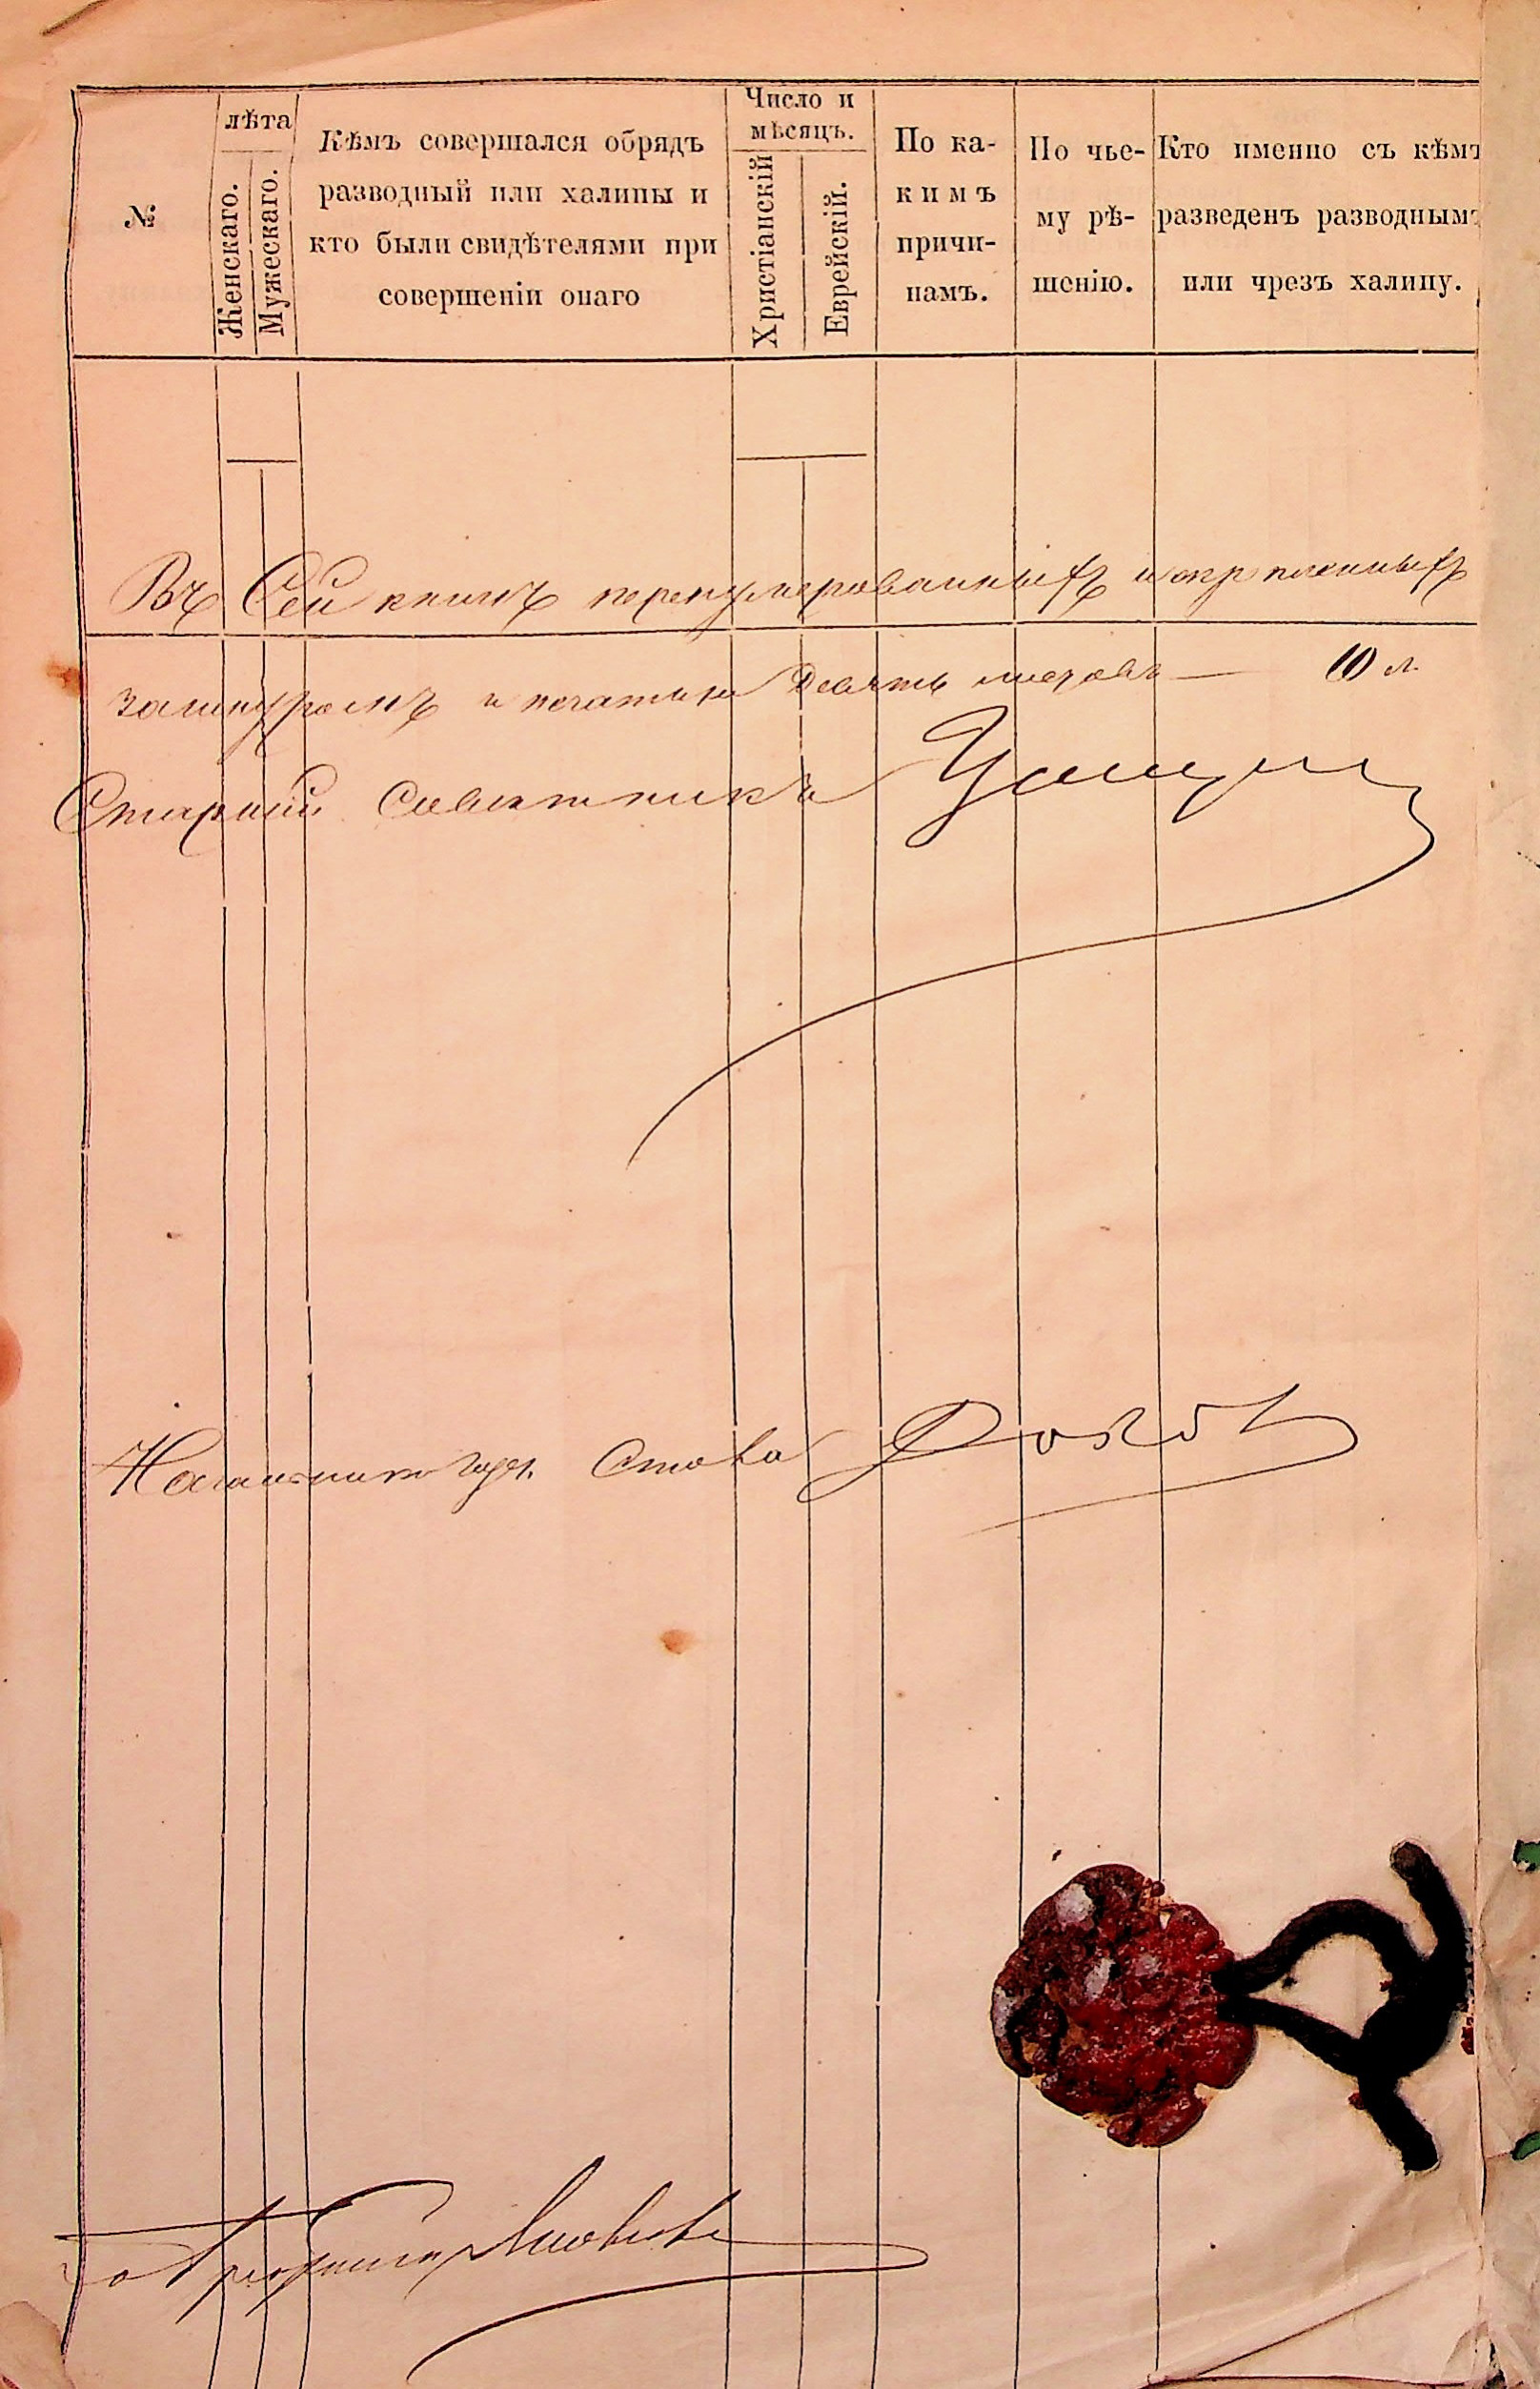 №
лѣта
Женскаго.
Мужескаго.
Кѣмъ совершался обрядъ
разводный или халицы и
кто были свидѣтелями при
совершеніи онаго
Число и
мѣсяцъ.
Христіанскій
Еврейскій.
По ка-
кимъ
причи-
намъ.
По чье-
му рѣ-
шенію.
Кто именно съ кѣмъ
разведенъ разводнымъ
или чрезъ халицу.
Въ Сей книгѣ перенумерованныхъ и скрѣпленныхъ
за шнуромъ и печатью листовъ — 10 л.
Старшій Совѣтникъ
Стола